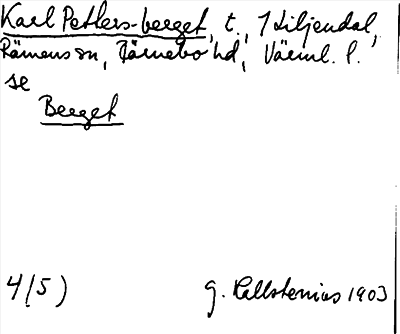 Karl Petters-berget, t., 1 Liljendal,
Rämens sn, Färnebo hd, Värml. l.
se
Berget
4(5) G. Kallstenius 1903